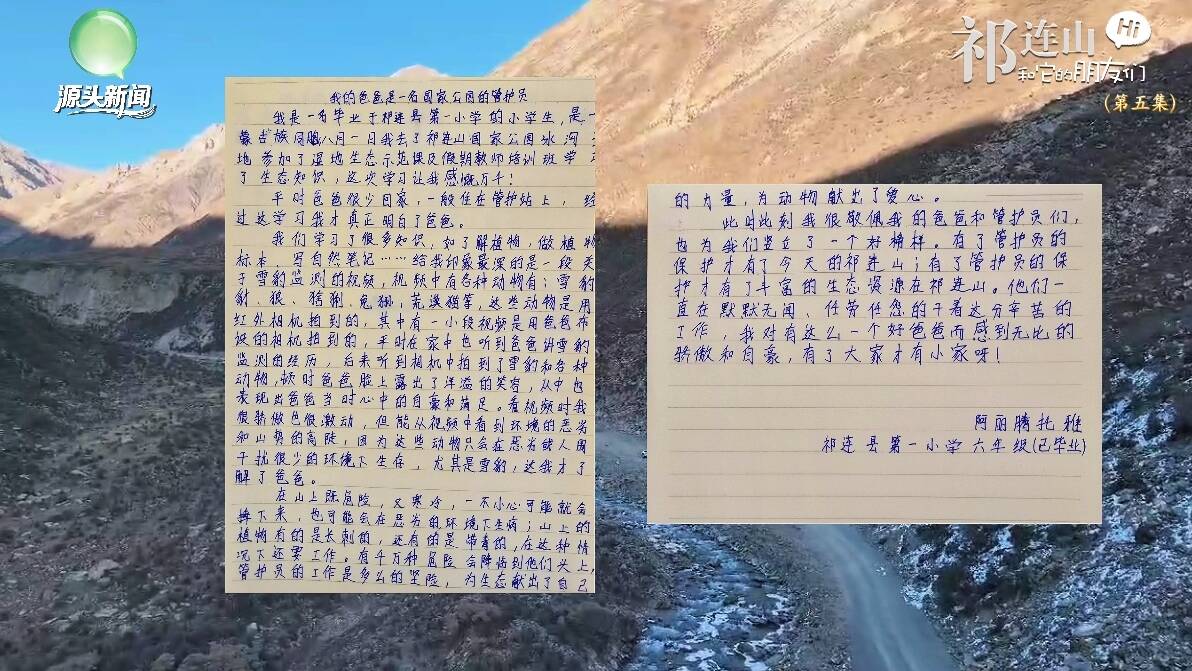 源头新闻
祁连山
Hi
和它的朋友们
(第五集)
我的爸爸是一名国家公园的管护员
我是一名毕业于祁连县第一小学的小学生，是一
蒙古族 八月一日我去了祁连山国家公园冰沟
地参加了湿地生态示范课及假期教师培训班学
了生态知识，这次学习让我感慨万千！
平时爸爸很少回家，一般住在管护站上，经
过这学习我才真正明白了爸爸。
我们学习了很多知识，如了解植物，做植物
标本、写自然笔记……给我印象最深的是一段关
于雪豹监测的视频，视频中有各种动物有：雪豹
豹、狼、猞猁、兔狲，荒漠猫等，这些动物是用
红外相机拍到的，其中有一小段视频是用爸爸布
设的相机拍到的，平时在家中也听到爸爸讲雪豹
监测的经历，后来听到相机中拍到了雪豹和各种
动物，顿时爸爸脸上露出了洋溢的笑容，从中也
表现出爸爸当时心中的自豪和满足。看视频时我
很骄傲也很激动，但能从视频中看到环境的恶劣
和山势的高陡，因为这些动物只会在恶劣被人间
干扰很少的环境下生存，尤其是雪豹，这我才了
解了爸爸。
在山上既危险，又寒冷，一不小心可能就会
摔下来，也可能会在恶劣的环境下生病；山上的
植物有的是长刺的，还有的是带毒的，在这种情
况下还要工作。有千万种危险会降临到他们头上，
管护员的工作是多么的坚险，为生态献出了自己
的力量，为动物献出了爱心。
此时此刻我很敬佩我的爸爸和管护员们，
也为我们竖立了一个好榜样。有了管护员的
保护才有了今天的祁连山；有了管护员的保
护才有了丰富的生态资源在祁连山。他们一
直在默默无闻、任劳任怨的干着这分辛苦的
工作，我对有这么一个好爸爸而感到无比的
骄傲和自豪，有了大家才有小家呀！
阿丽腾托雅
祁连县第一小学六年级(已毕业)